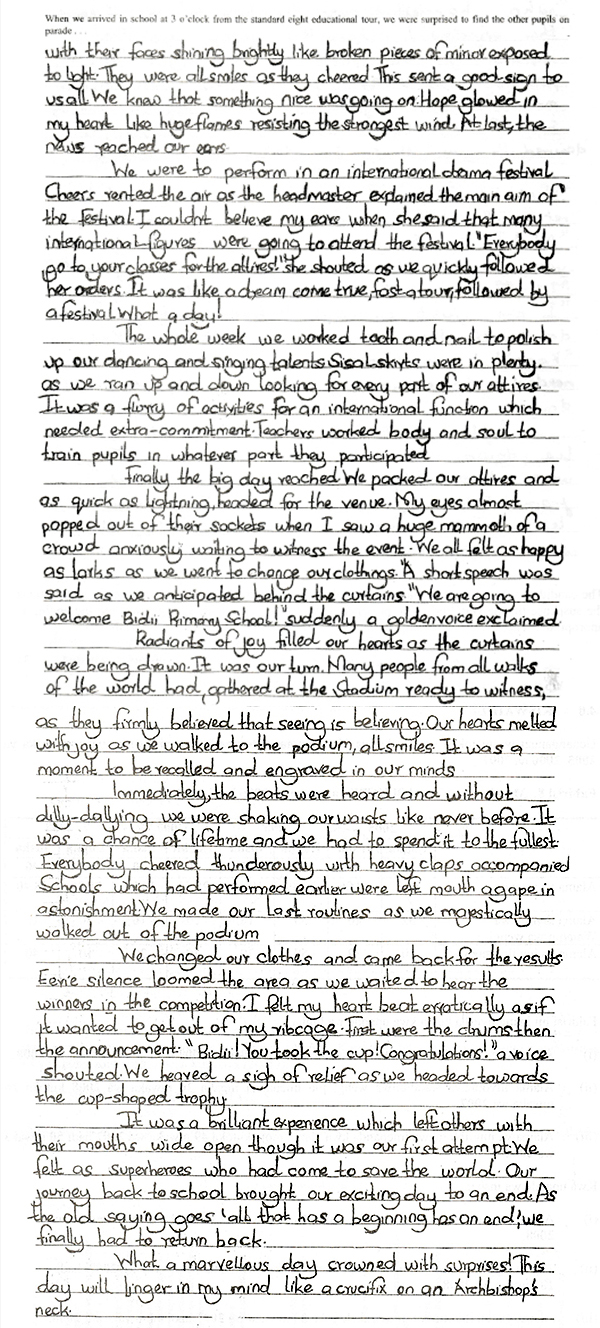 When we arrived in school at 3 o'clock from the standard eight educational tour, we were surprised to find the other pupils on
parade . . .
with their faces shining brightly like broken pieces of mirror exposed
to light. They were all smiles as they cheered This sent a good sign to
us all. We knew that something nice was going on. Hope glowed in
my heart like huge flames resisting the strongest wind. At last, the
news reached our ears.
We were to perform in an international drama festival
Cheers rented the air as the headmaster explained the main aim of
the festival. I couldn't believe my ears when she said that many
international figures were going to attend the festival. "Everybody
go to your classes for the attires!" she shouted as we quickly followed
her orders. It was like a dream come true, first a tour, followed by
a festival. What a day!
The whole week we worked tooth and nail to polish
up our dancing and singing talents. Sisal skirts were in plenty.
as we ran up and down looking for every part of our attires.
It was a flurry of activities for an international function which
needed extra-commitment. Teachers worked body and soul to
train pupils in whatever part they participated
Finally the big day reached. We packed our attires and
as quick as lightning, headed for the venue. My eyes almost
popped out of their sockets when I saw a huge mammoth of a
crowd anxiously waiting to witness the event. We all felt as happy
as larks as we went to change our clothings. A short speech was
said as we anticipated behind the curtains "We are going to
welcome Bidii Primary School!" suddenly a golden voice exclaimed.
Radiants of joy filled our hearts as the curtains
were being drawn. It was our turn. Many people from all walks
of the world had gathered at the Stadium ready to witness,
as they firmly believed that seeing is believing. Our hearts melted
with joy as we walked to the podium, all smiles. It was a
moment to be recalled and engraved in our minds
Immediately, the beats were heard and without
dilly-dallying we were shaking our waists like never before. It
was a chance of lifetime and we had to spend it to the fullest.
Everybody cheered thunderously with heavy claps accompanied
Schools which had performed earlier were left mouth agape in
astonishment. We made our last routines as we majestically
walked out of the podium
We changed our clothes and came back for the results
Eerie silence loomed the area as we waited to hear the
winners in the competition. I felt my heart beat erratically as if
it wanted to get out of my ribcage. First were the drums then
the announcement. "Bidii! You took the cup! Congratulations!" a voice
shouted. We heaved a sigh of relief as we headed towards
the cup-shaped trophy
It was a brilliant experience which left others with
their mouths wide open though it was our first attempt. We
felt as superheroes who had come to save the world. Our
journey back to school brought our exciting day to an end. As
the old saying goes 'all that has a beginning has an end', we
finally had to return back.
What a marvellous day crowned with surprises! This
day will linger in my mind like a crucifix on an Archbishop's
neck.